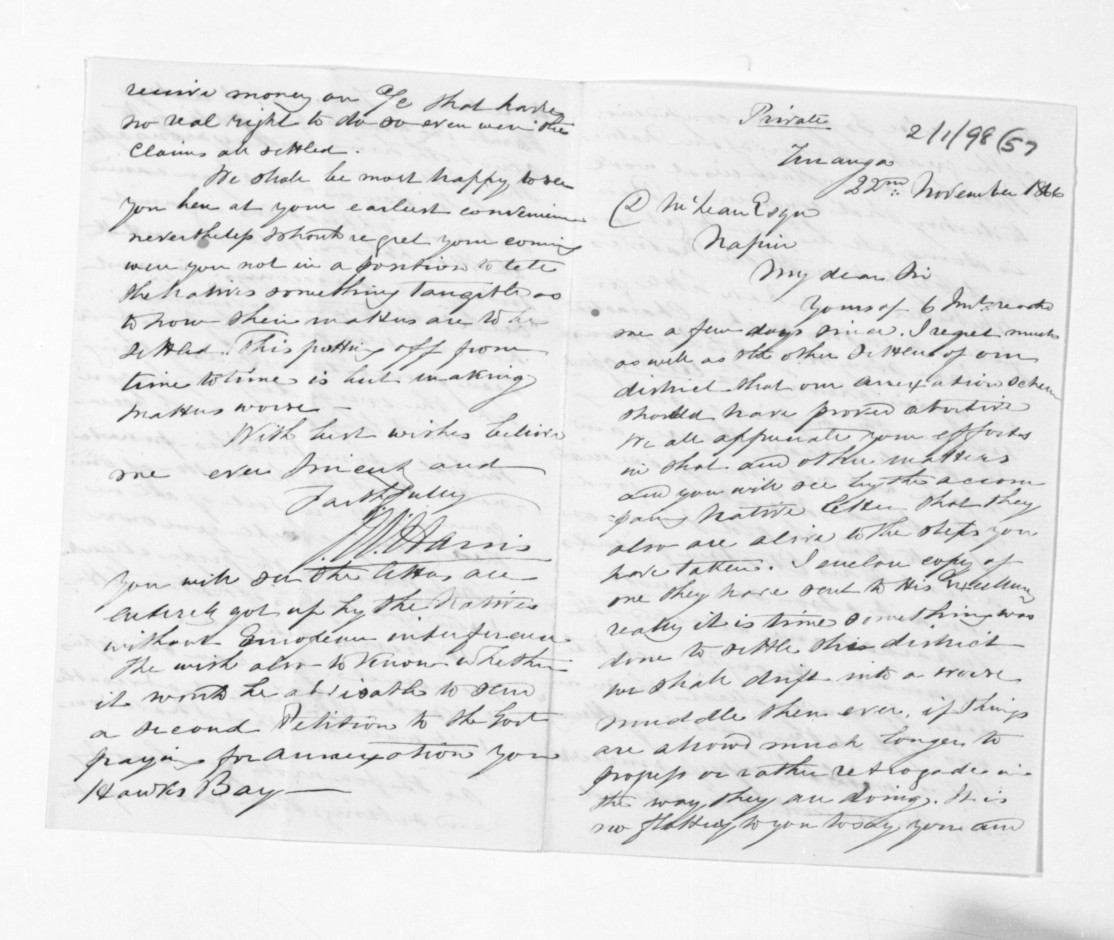 Private
2/1/98(57
Turanga
22nd November 1866
D McLean Esqre
Napier
My dear Sir
Yours of 6 Inst. reached
me a few days since. I regret much
as well as old other settlers of our
district that our annexation scheme
should have proved abortive
We all appreciate your efforts
in that and other matters
and you will see by the accom
=pany Native letter that they
also are alive to the steps you
have taken. I enclose copy of
one they have sent to His Excellency
really it is time something was
done to settle this district
we shall drift into a worse
muddle then ever, if things
are allowed much longer to
progress or rather retrogade in
the way they are doing. It is
no flattery to you to say your and
receive money on a/c that have
no real right to do so even were the
claims all settled.
We shall be most happy to see
you here at your earliest convenience
nevertheless should regret your coming
were you not in a position to tell
the Natives something tangible as
to how their matters are to be
settled. This putting off from
time to time is but making
matters worse —
With best wishes believe
me ever Sincerely and
Faithfully
J.W. Harris
You will see the letters are
entirely got up by the Natives
without European interference
the wish also to know whether
it would be advisable to send
a second Petition to the Govt
praying for annexation you
Hawks Bay —